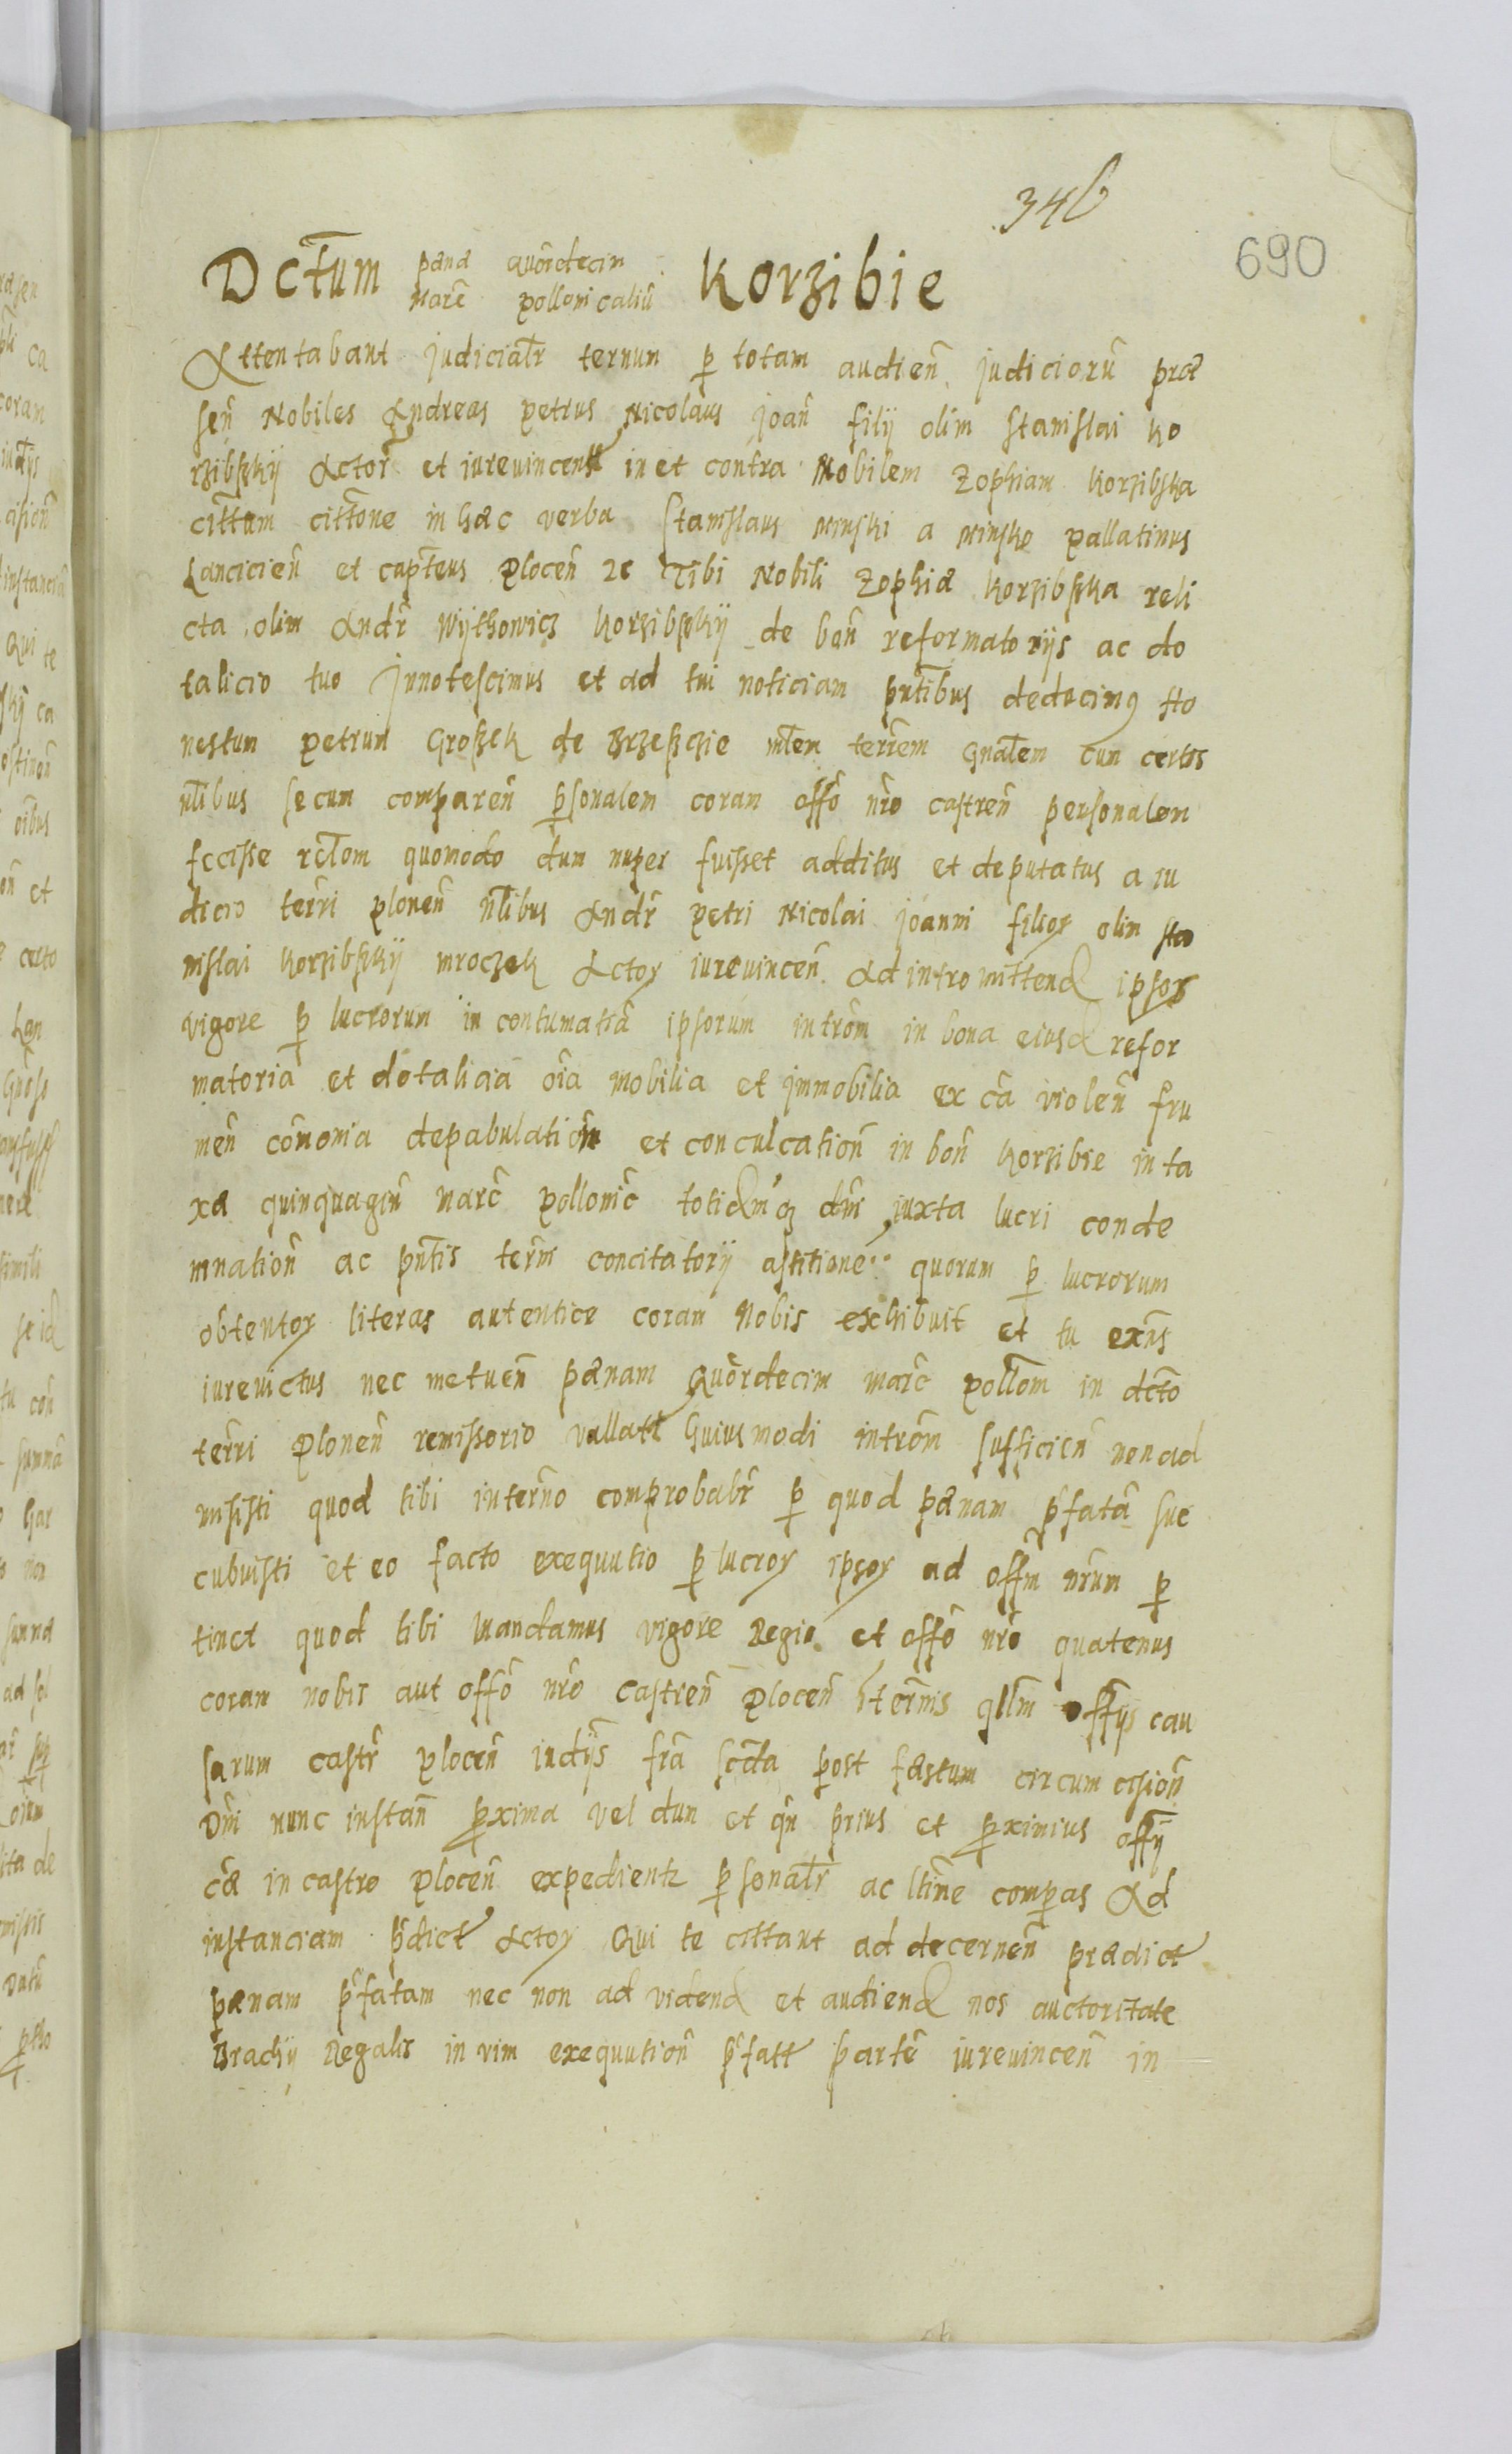 346
690
Dctum pænæ quordecim Korzibie
marc pollonicaliu
Attentabant judicialr ternum p totam audien judicioru præ
sen Nobiles Andreas petrus Nicolaus joan filij olim stanislai Ko
rzibskij Actor et iurevincent in et contra Nobilem Zophiam Korzibska
cittam cittone in hæc verba Stanislaus Minski a Minsko pallatinus
Lancicien et capteus plocen 2c Tibi Nobili Zophiæ Korzibska reli
cta olim Andr Wijthowicz Korzibskij de bon reformatorijs ac do
talicio tuo Innotescimus et ad tui noticiam pntibus deducimq Ho
nestum petrum Groszek de Brzesczie mlem terrem Gnalem cum certis
nlibus secum comparen psonalem coram offo nro castren personalem
fecisse relom quomodo dum nuper fuisset additus et deputatus a iu
dicio terri plonen nlibus Andr petri Nicolai joanni filior olim sta
nislai Korzibskij mroczek Actor iurevincen Ad intromittend ipsos
vigore p lucrorum in contumatia ipsorum introm in bona eiusd refor
matoria et dotalicia oia mobilia et immobilia ex ca violen fru
men connomia depabulation et conculcation in bon Korzibie in ta
xa quinquagin marc pollonic totidmq dni iuxta lucri conde
mnation ac pntis term concitatorij astitione quorum p lucrorum
obtentor literas autentice coram Nobis exhibuit et tu exns
iurevictus nec metuen pænam Quordecim marc pollom in dcto
terri Plonen remissorio vallatt huiusmodi introm sufficien non ad
misisti quod tibi interno comprobabr p quod pænam pfata suc
cubuisti et eo facto exequutio p lucror ipsor ad offm nrum p
tinet quod tibi mandamus vigore Regio et offo nro quatenus
coram nobis aut offo nro castren Plocen Itermis qllm offijs cau
sarum castr plocen iudijs fra scda post fæstum circumcision
Dni nunc instan pxima vel dum et qn prius et pximius offij
cæ in castro Plocen expedientz psonalr ac ltime compas Ad
instanciam pdict Actor Qui te cittant ad decernen prædict
pænam pfatam nec non ad vidend et audiend nos auctoritate
Brachij Regalis in vim exequution pfatt parte iurevincen in